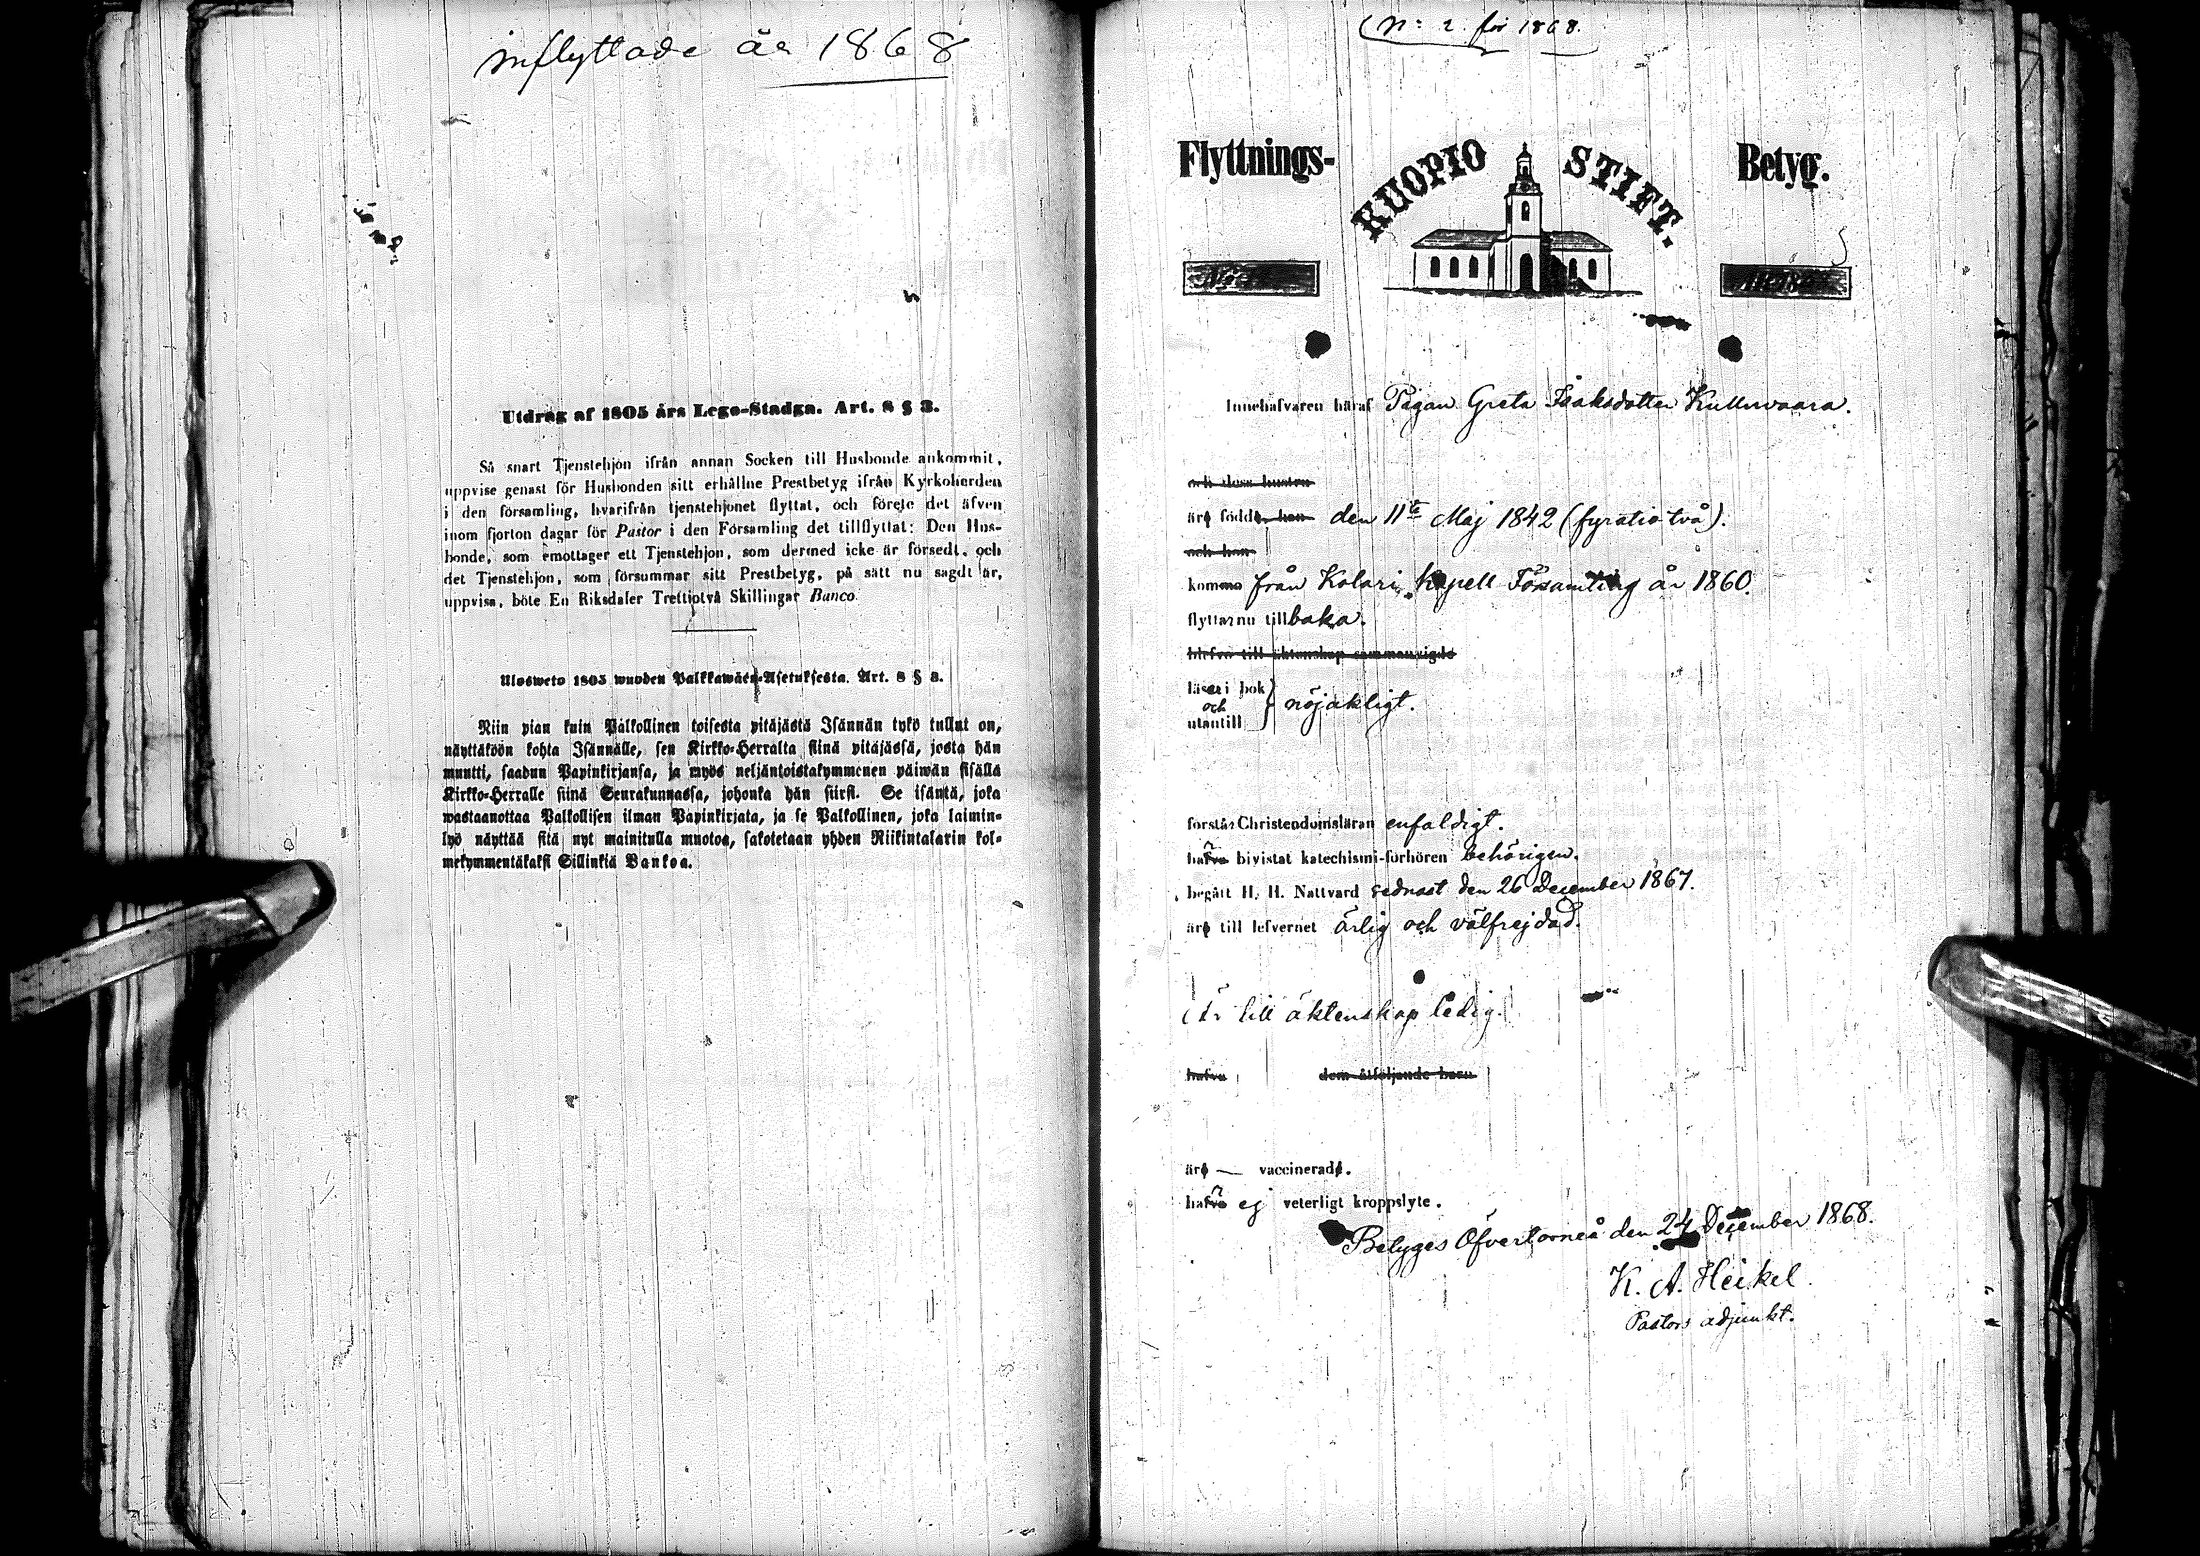 inflyttade år 1868
Utdrag af 1805 års Lego-Stadga. Art. 8 § 3.
Så snart Tjenstehjon ifrån annan Socken till Husbonde ankommit,
uppvise genast för Husbonden sitt erhållne Prestbetyg ifrån Kyrkoherden
i den församling, hvarifrån tjenstehjonet flyttat, och förete det äfven
inom fjorton dagar för Pastor i den Församling det tillflyttat: Den Hus-
bonde, som emottager ett Tjenstehjon, som dermed icke är försedt, och
det Tjenstehjon, som försummar sitt Prestbetyg, på sätt nu sagdt är,
uppvisa, böte En Riksdaler Trettiotvå Skillingar Banco.
Ulosweto 1805 wuoden Palkkawäen-Asetuksesta. Art. 8 § 3.
Niin pian kuin Palkollinen toisesta pitäjästä Isännän tykö tullut on,
näyttäköön kohta Isännälle, sen Kirkko-Herralta siinä pitäjässä, josta hän
muutti, saadun Papinkirjansa, ja myös neljäntoistakymmenen päiwän sisällä
Kirkko-Herralle siinä Seurakunnassa, johonka hän siirsi. Se isäntä, joka
wastaanottaa Palkollisen ilman Papinkirjata, ja se Palkollinen, joka laimin-
lyö näyttää sitä nyt mainitulla muotoa, sakotetaan yhden Riikintalarin kol-
mekymmentäkaksi Sillinkiä Bankoa.
N:o 2. för 1868.
Flyttnings- KUOPIO STIFT. Betyg.
Innehafvaren häraf Pigan Greta Isaksdotter Kullervaara.
och dess hustru
äro född, han den 11te Maj 1842 (fyratio två).
och hon
kommo från Kolari Kapell Församling år 1860.
flyttar nu tillbaka.
blefvo till äktenskap sammanvigde
läser i bok
och
utantill } nöjaktigt.
förstår Christendomsläran enfaldigt.
hafva bivistat katechismi-förhören behörigen.
begått H. H. Nattvard sednast den 26 December 1867.
äro till lefvernet ärlig och välfrejdad.
Är till äktenskap ledig.
hafva dem åtföljande barn
äro — vaccinerade.
hafva ej veterligt kroppslyte.
Betyges Öfvertorneå den 24 December 1868.
K. A. Heikel.
Pastors adjunkt.